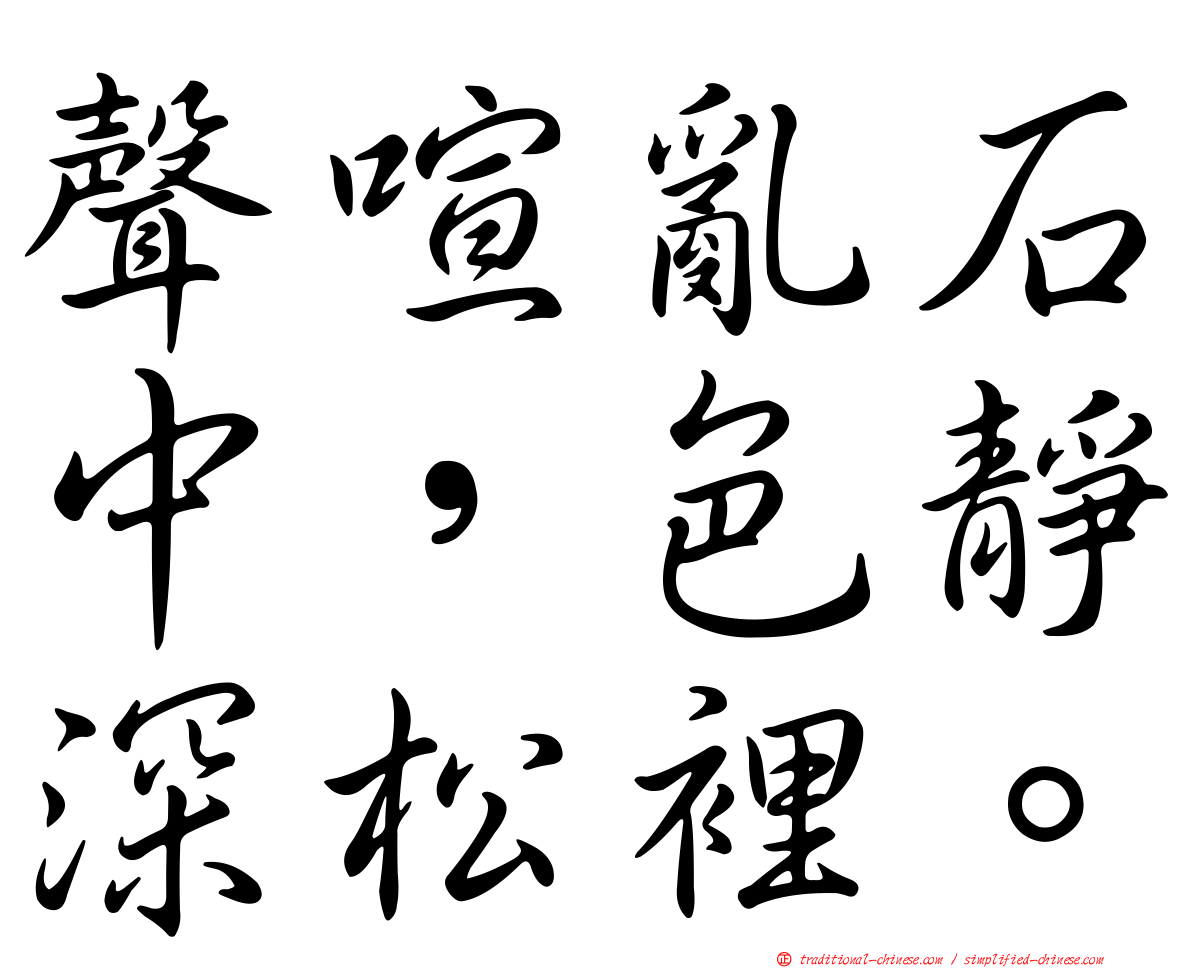 聲喧亂石
中，色靜
深松裡。
正 traditional-chinese.com / simplified-chinese.com